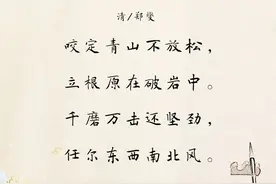 清/郑燮
咬定青山不放松，
立根原在破岩中。
千磨万击还坚劲，
任尔东西南北风。